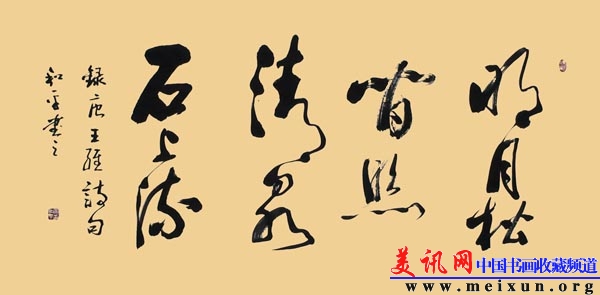 明月松
间照
清泉
石上流
録唐王維詩句
知正書之
美讯网 中国书画收藏频道
www.meixun.org